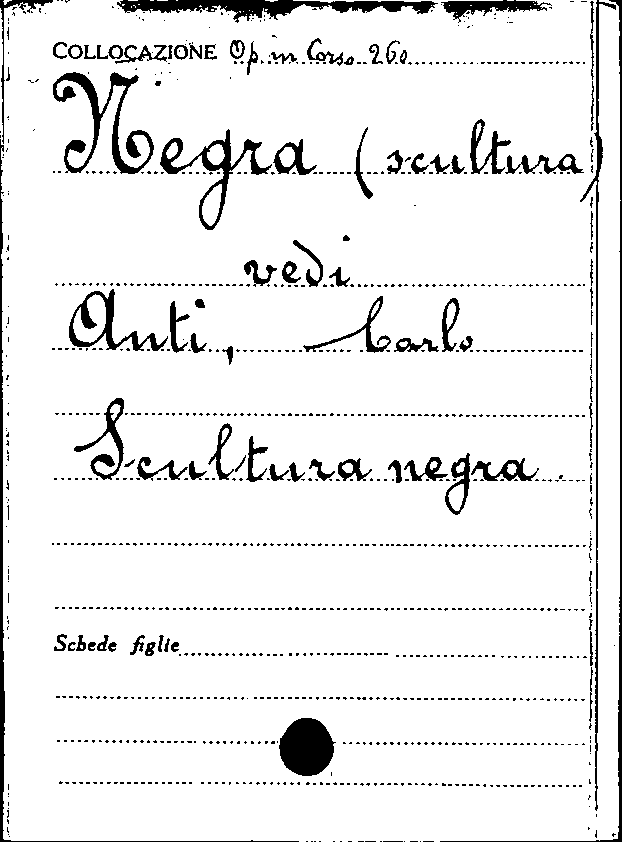 COLLOCAZIONE Op. in Corso 260
Negra (scultura)
vedi
Anti, Carlo
Scultura negra.
Schede figlie